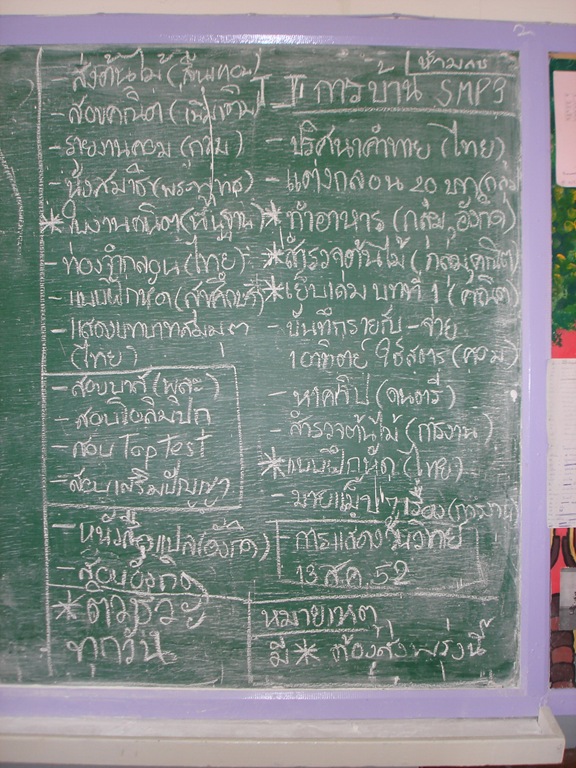 ห้ามลบ
การบ้าน SMP3
- ปริศนาคำทาย (ไทย)
- แต่งกลอน 20 บท
* ทำอาหาร (กลุ่ม, อังกฤษ)
* สำรวจต้นไม้ (กลุ่ม, คณิต)
* เย็บเล่ม บทที่ 1 (คณิต)
- บันทึกรายรับ-จ่าย
1 อาทิตย์ (คอม)
- หาคลิป (ดนตรี)
- สำรวจต้นไม้ (การงาน)
* แบบฝึกหัด (ไทย)
- มายแม็ป 7 เรื่อง (การงาน)
- การแสดงวันวิทย์
13 ส.ค. 52
หมายเหตุ
มี * ต้องส่งพรุ่งนี้
- ส่งต้นไม้
- สอบคณิต
- รายงานคอม
- นั่งสมาธิ (พระพุทธ)
* ใบงานคณิต (พื้นฐาน)
- ท่องจำกลอน (ไทย)
- แบบฝึกหัด (สุขศึกษา)
- แสดงบทบาทสมมติ
(ไทย)
- สอบบาส (พละ)
- สอบโอลิมปิก
- สอบ Top Test
- สอบเสริมปัญญา
- หนังสือแปล (อังกฤษ)
- สอบอังกฤษ
* ติว
ทุกวัน